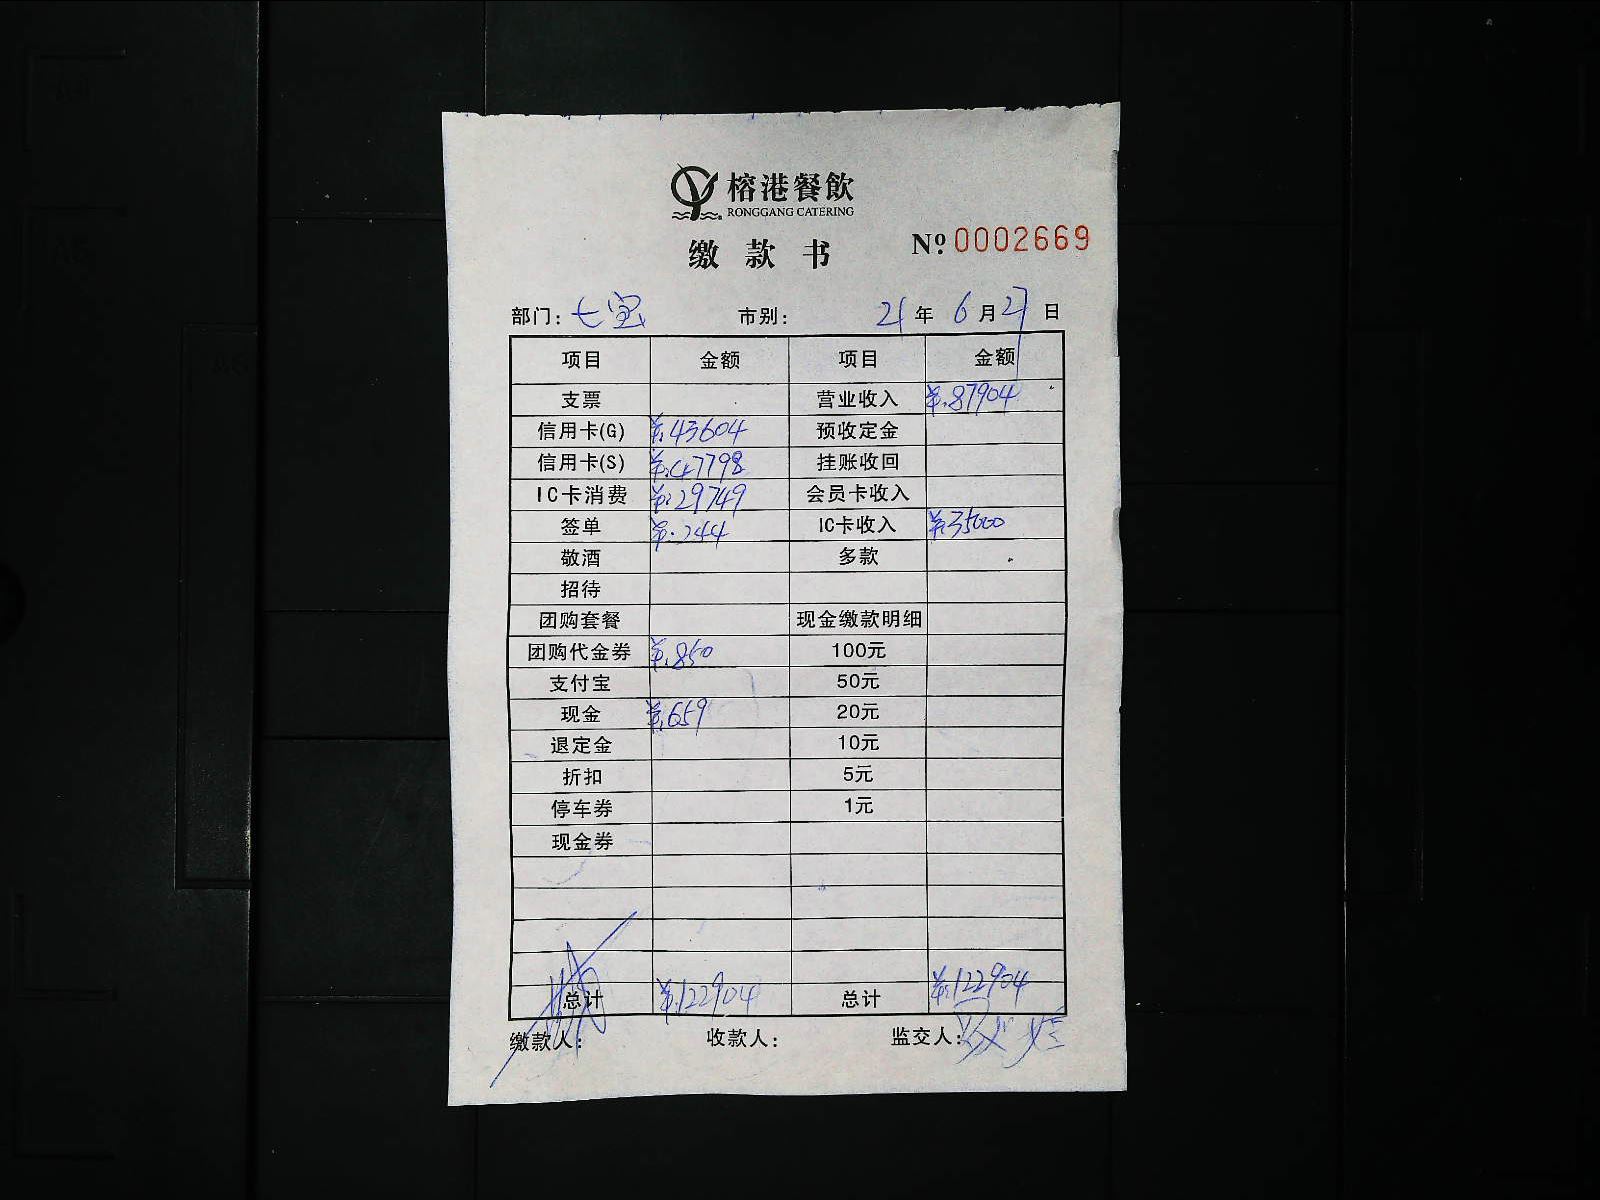 榕港餐飲
RONGGANG CATERING
缴款书 Nº 0002669
部门: 七宝 市别: 21年 6月 27日
项目 金额 项目 金额
支票 营业收入 ¥.87904
信用卡(G) ¥.43604 预收定金
信用卡(S) ¥.47798 挂账收回
IC卡消费 ¥.29749 会员卡收入
签单 ¥.244 IC卡收入 ¥.35000
敬酒 多款
招待
团购套餐 现金缴款明细
团购代金券 ¥.850 100元
支付宝 50元
现金 ¥.659 20元
退定金 10元
折扣 5元
停车券 1元
现金券
总计 ¥.122904 总计 ¥.122904
缴款人: 收款人: 监交人: